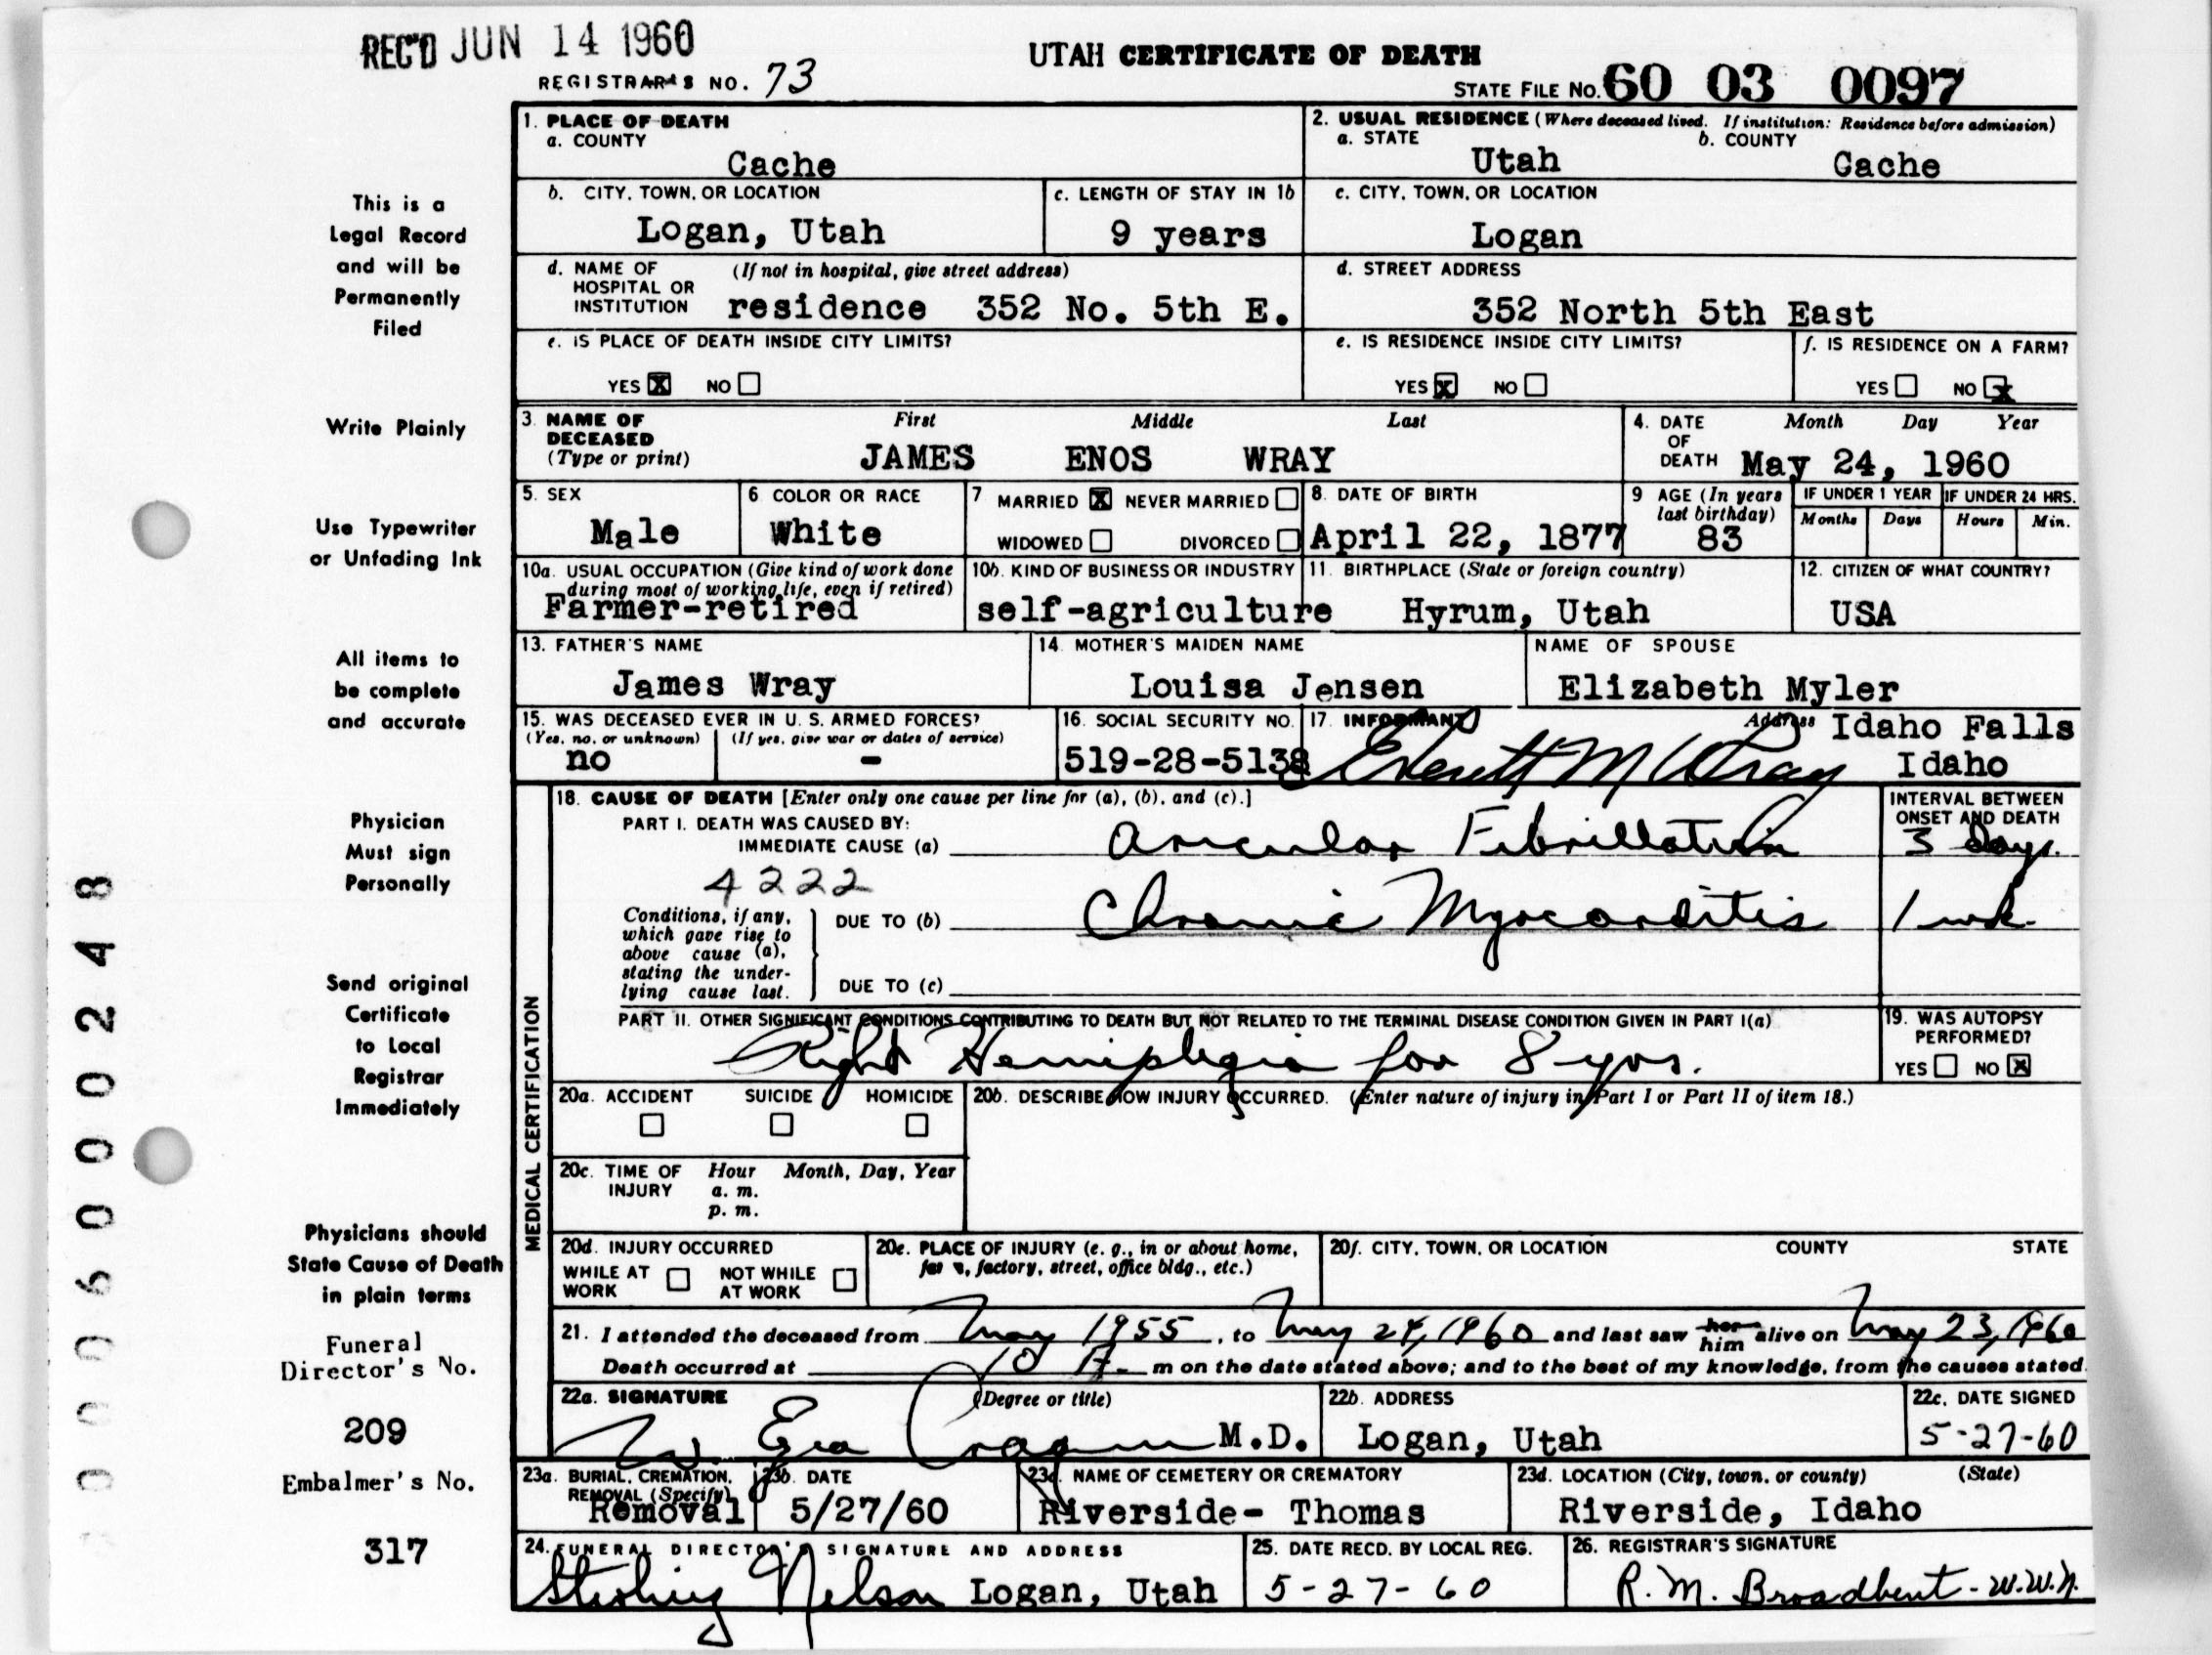 REC'D JUN 14 1960
UTAH CERTIFICATE OF DEATH
REGISTRAR'S NO. 73
STATE FILE NO. 60 03 0097
1. PLACE OF DEATH
a. COUNTY
Cache
2. USUAL RESIDENCE (Where deceased lived. If institution: Residence before admission)
a. STATE b. COUNTY
Utah Cache
b. CITY, TOWN, OR LOCATION
Logan, Utah
c. LENGTH OF STAY IN 1b
9 years
c. CITY, TOWN, OR LOCATION
Logan
d. NAME OF HOSPITAL OR INSTITUTION (If not in hospital, give street address)
residence 352 No. 5th E.
d. STREET ADDRESS
352 North 5th East
e. IS PLACE OF DEATH INSIDE CITY LIMITS?
YES X NO
e. IS RESIDENCE INSIDE CITY LIMITS?
YES X NO
f. IS RESIDENCE ON A FARM?
YES NO X
3. NAME OF DECEASED (Type or print)
First Middle Last
JAMES ENOS WRAY
4. DATE OF DEATH
Month Day Year
May 24, 1960
5. SEX
Male
6 COLOR OR RACE
White
7 MARRIED X NEVER MARRIED
WIDOWED DIVORCED
8. DATE OF BIRTH
April 22, 1877
9 AGE (In years last birthday)
83
IF UNDER 1 YEAR
Months Days
IF UNDER 24 HRS.
Hours Min.
10a. USUAL OCCUPATION (Give kind of work done during most of working life, even if retired)
Farmer-retired
10b. KIND OF BUSINESS OR INDUSTRY
self-agriculture
11. BIRTHPLACE (State or foreign country)
Hyrum, Utah
12. CITIZEN OF WHAT COUNTRY?
USA
13. FATHER'S NAME
James Wray
14. MOTHER'S MAIDEN NAME
Louisa Jensen
NAME OF SPOUSE
Elizabeth Myler
15. WAS DECEASED EVER IN U. S. ARMED FORCES?
(Yes, no, or unknown) (If yes, give war or dates of service)
no -
16. SOCIAL SECURITY NO.
519-28-5138
17. INFORMANT Address
Everett M Wray Idaho Falls
Idaho
MEDICAL CERTIFICATION
18. CAUSE OF DEATH [Enter only one cause per line for (a), (b), and (c).]
INTERVAL BETWEEN ONSET AND DEATH
PART I. DEATH WAS CAUSED BY:
IMMEDIATE CAUSE (a) Auricular Fibrillation 3 days.
4222
Conditions, if any, which gave rise to above cause (a), stating the underlying cause last.
DUE TO (b) Chronic Myocarditis 1 wk.
DUE TO (c)
PART II. OTHER SIGNIFICANT CONDITIONS CONTRIBUTING TO DEATH BUT NOT RELATED TO THE TERMINAL DISEASE CONDITION GIVEN IN PART I(a)
Right Hemiplegia for 8 yrs.
19. WAS AUTOPSY PERFORMED?
YES NO X
20a. ACCIDENT SUICIDE HOMICIDE
20b. DESCRIBE HOW INJURY OCCURRED. (Enter nature of injury in Part I or Part II of item 18.)
20c. TIME OF INJURY Hour Month, Day, Year
a. m.
p. m.
20d. INJURY OCCURRED
WHILE AT WORK NOT WHILE AT WORK
20e. PLACE OF INJURY (e. g., in or about home, farm, factory, street, office bldg., etc.)
20f. CITY, TOWN, OR LOCATION COUNTY STATE
21. I attended the deceased from May 1955, to May 24, 1960 and last saw her him alive on May 23, 1960
Death occurred at 10 A. m on the date stated above; and to the best of my knowledge, from the causes stated.
22a. SIGNATURE (Degree or title)
W. Ezra Cragun M.D.
22b. ADDRESS
Logan, Utah
22c. DATE SIGNED
5-27-60
23a. BURIAL, CREMATION, REMOVAL (Specify)
Removal
23b. DATE
5/27/60
23c. NAME OF CEMETERY OR CREMATORY
Riverside- Thomas
23d. LOCATION (City, town, or county) (State)
Riverside, Idaho
24. FUNERAL DIRECTOR'S SIGNATURE AND ADDRESS
Sterling Nelson Logan, Utah
25. DATE RECD. BY LOCAL REG.
5-27-60
26. REGISTRAR'S SIGNATURE
R. M. Broadbent - W.W.N.
This is a
Legal Record
and will be
Permanently
Filed
Write Plainly
Use Typewriter
or Unfading Ink
All items to
be complete
and accurate
Physician
Must sign
Personally
Send original
Certificate
to Local
Registrar
Immediately
Physicians should
State Cause of Death
in plain terms
Funeral
Director's No.
209
Embalmer's No.
317
0006000248